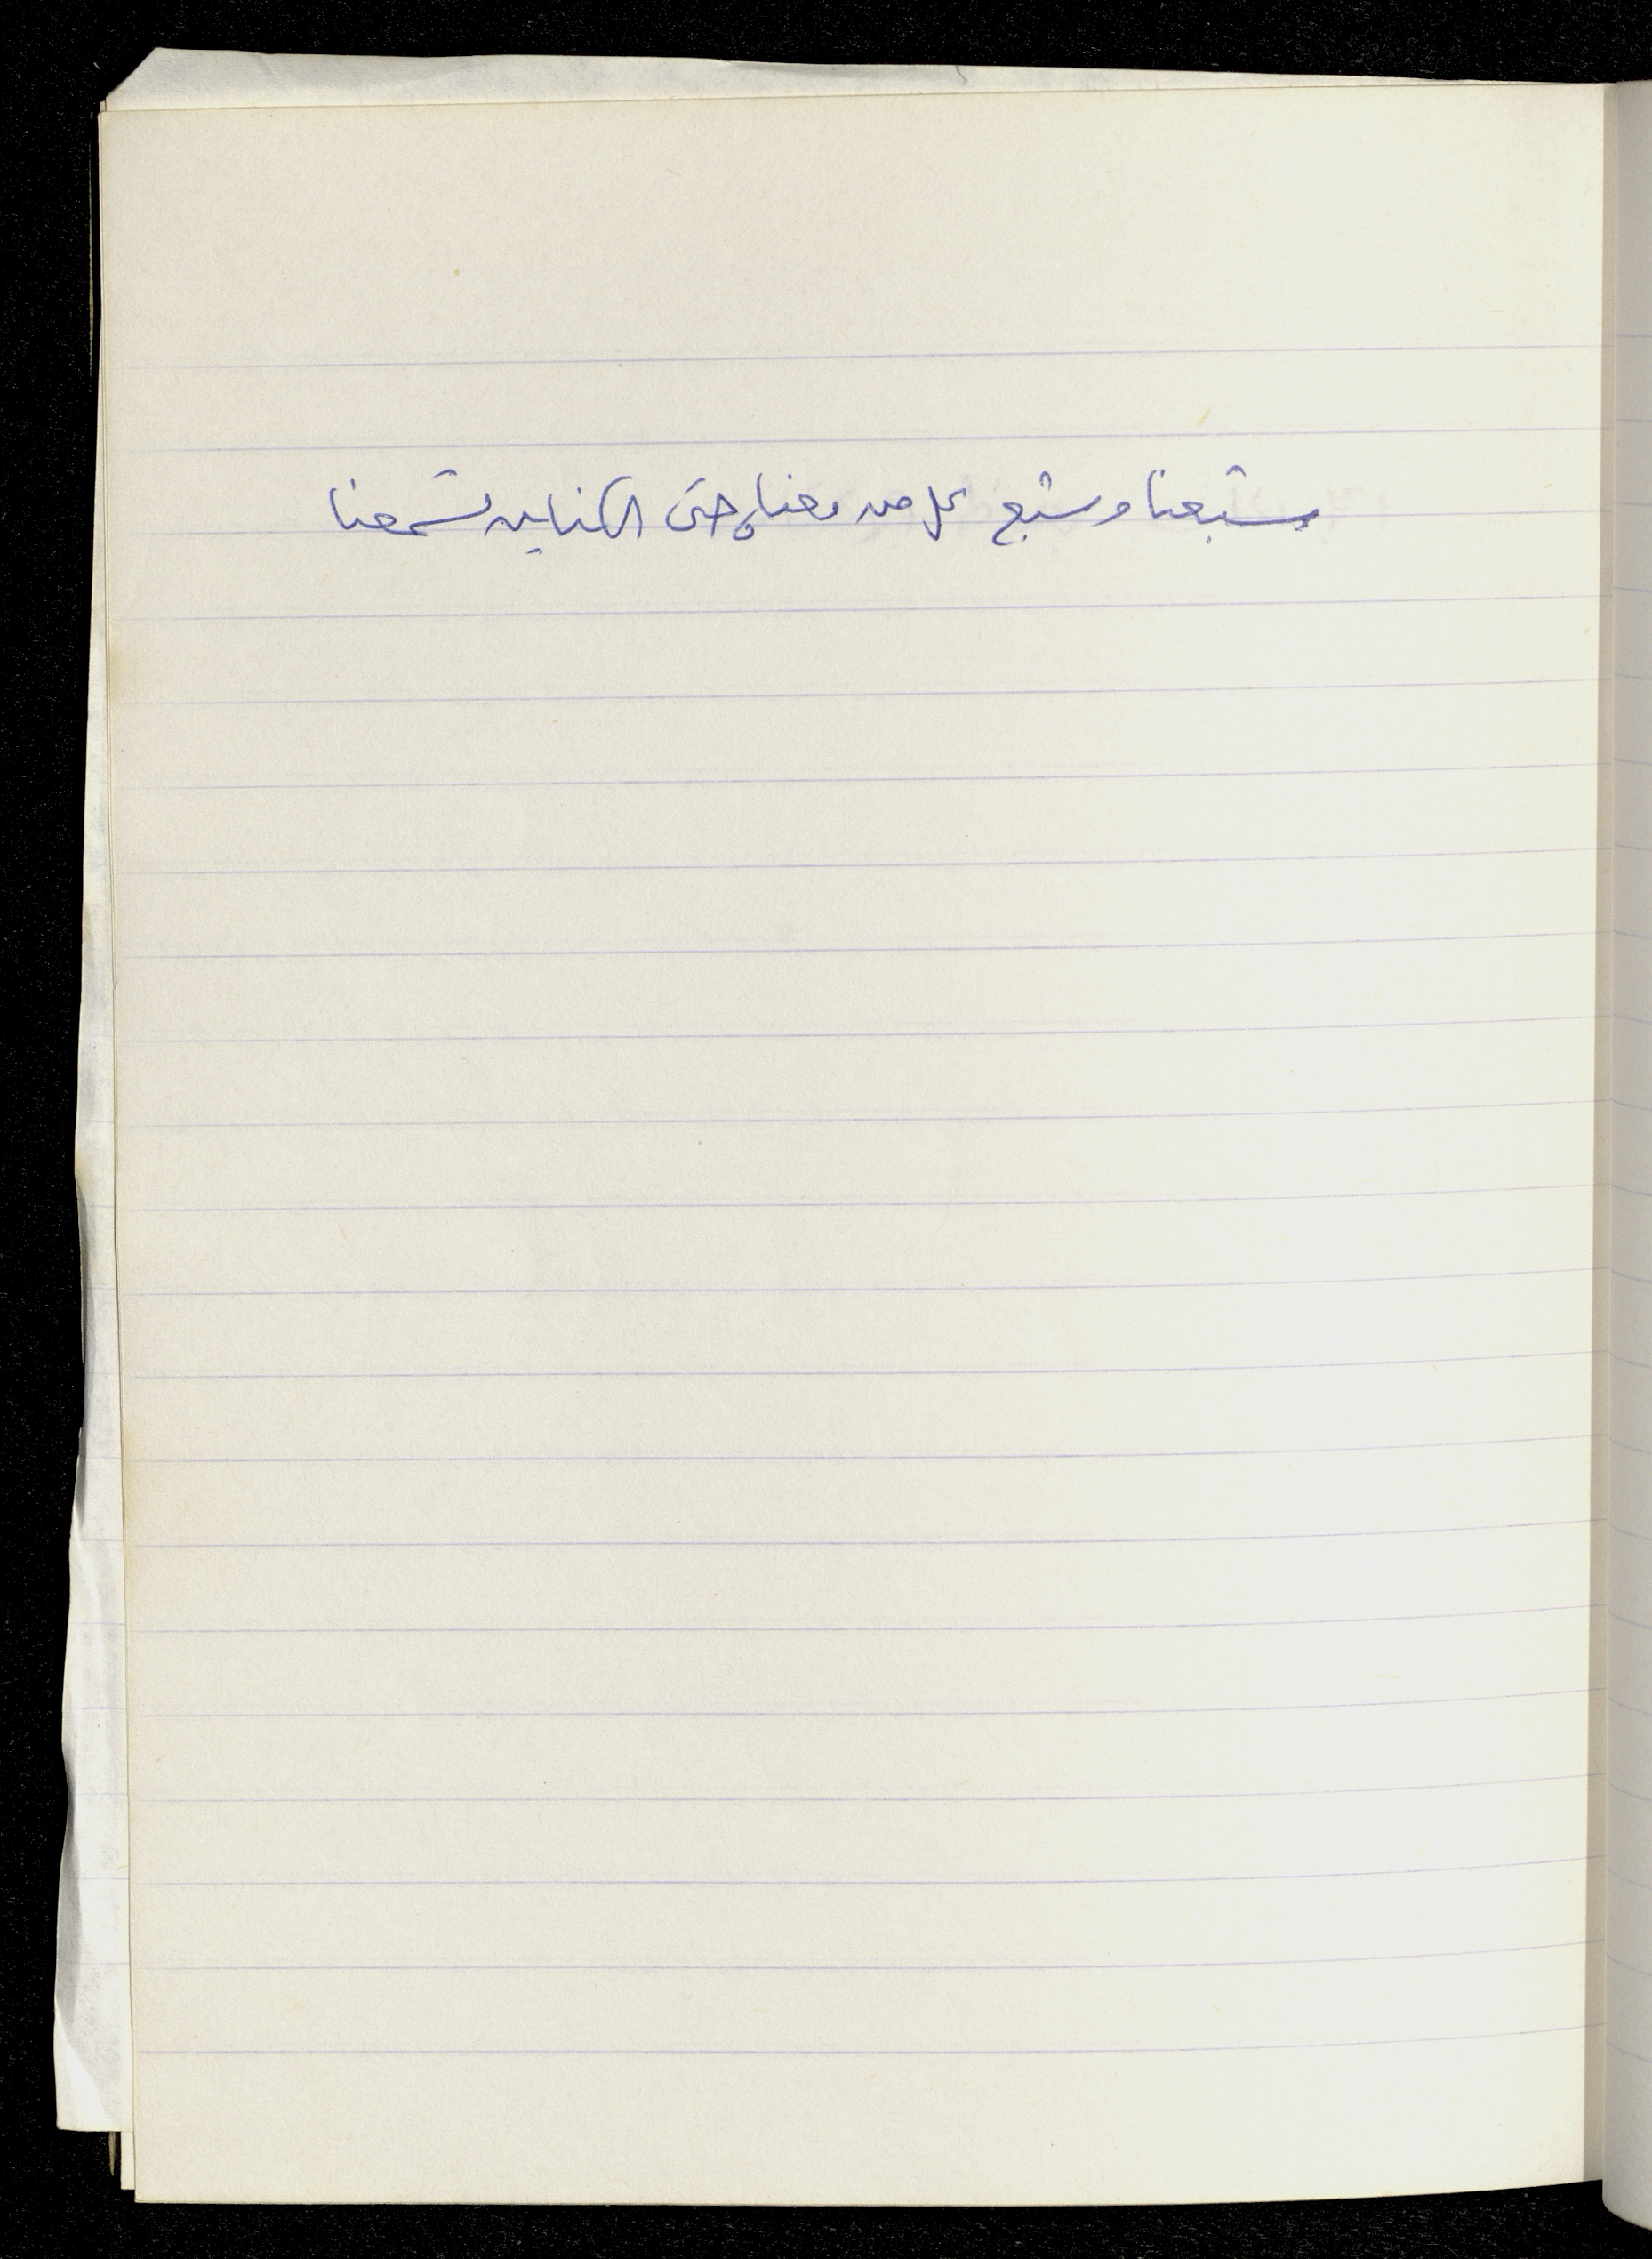 ستبعنا وستبع كل من معنا وحتى الكنايس تسمعنا